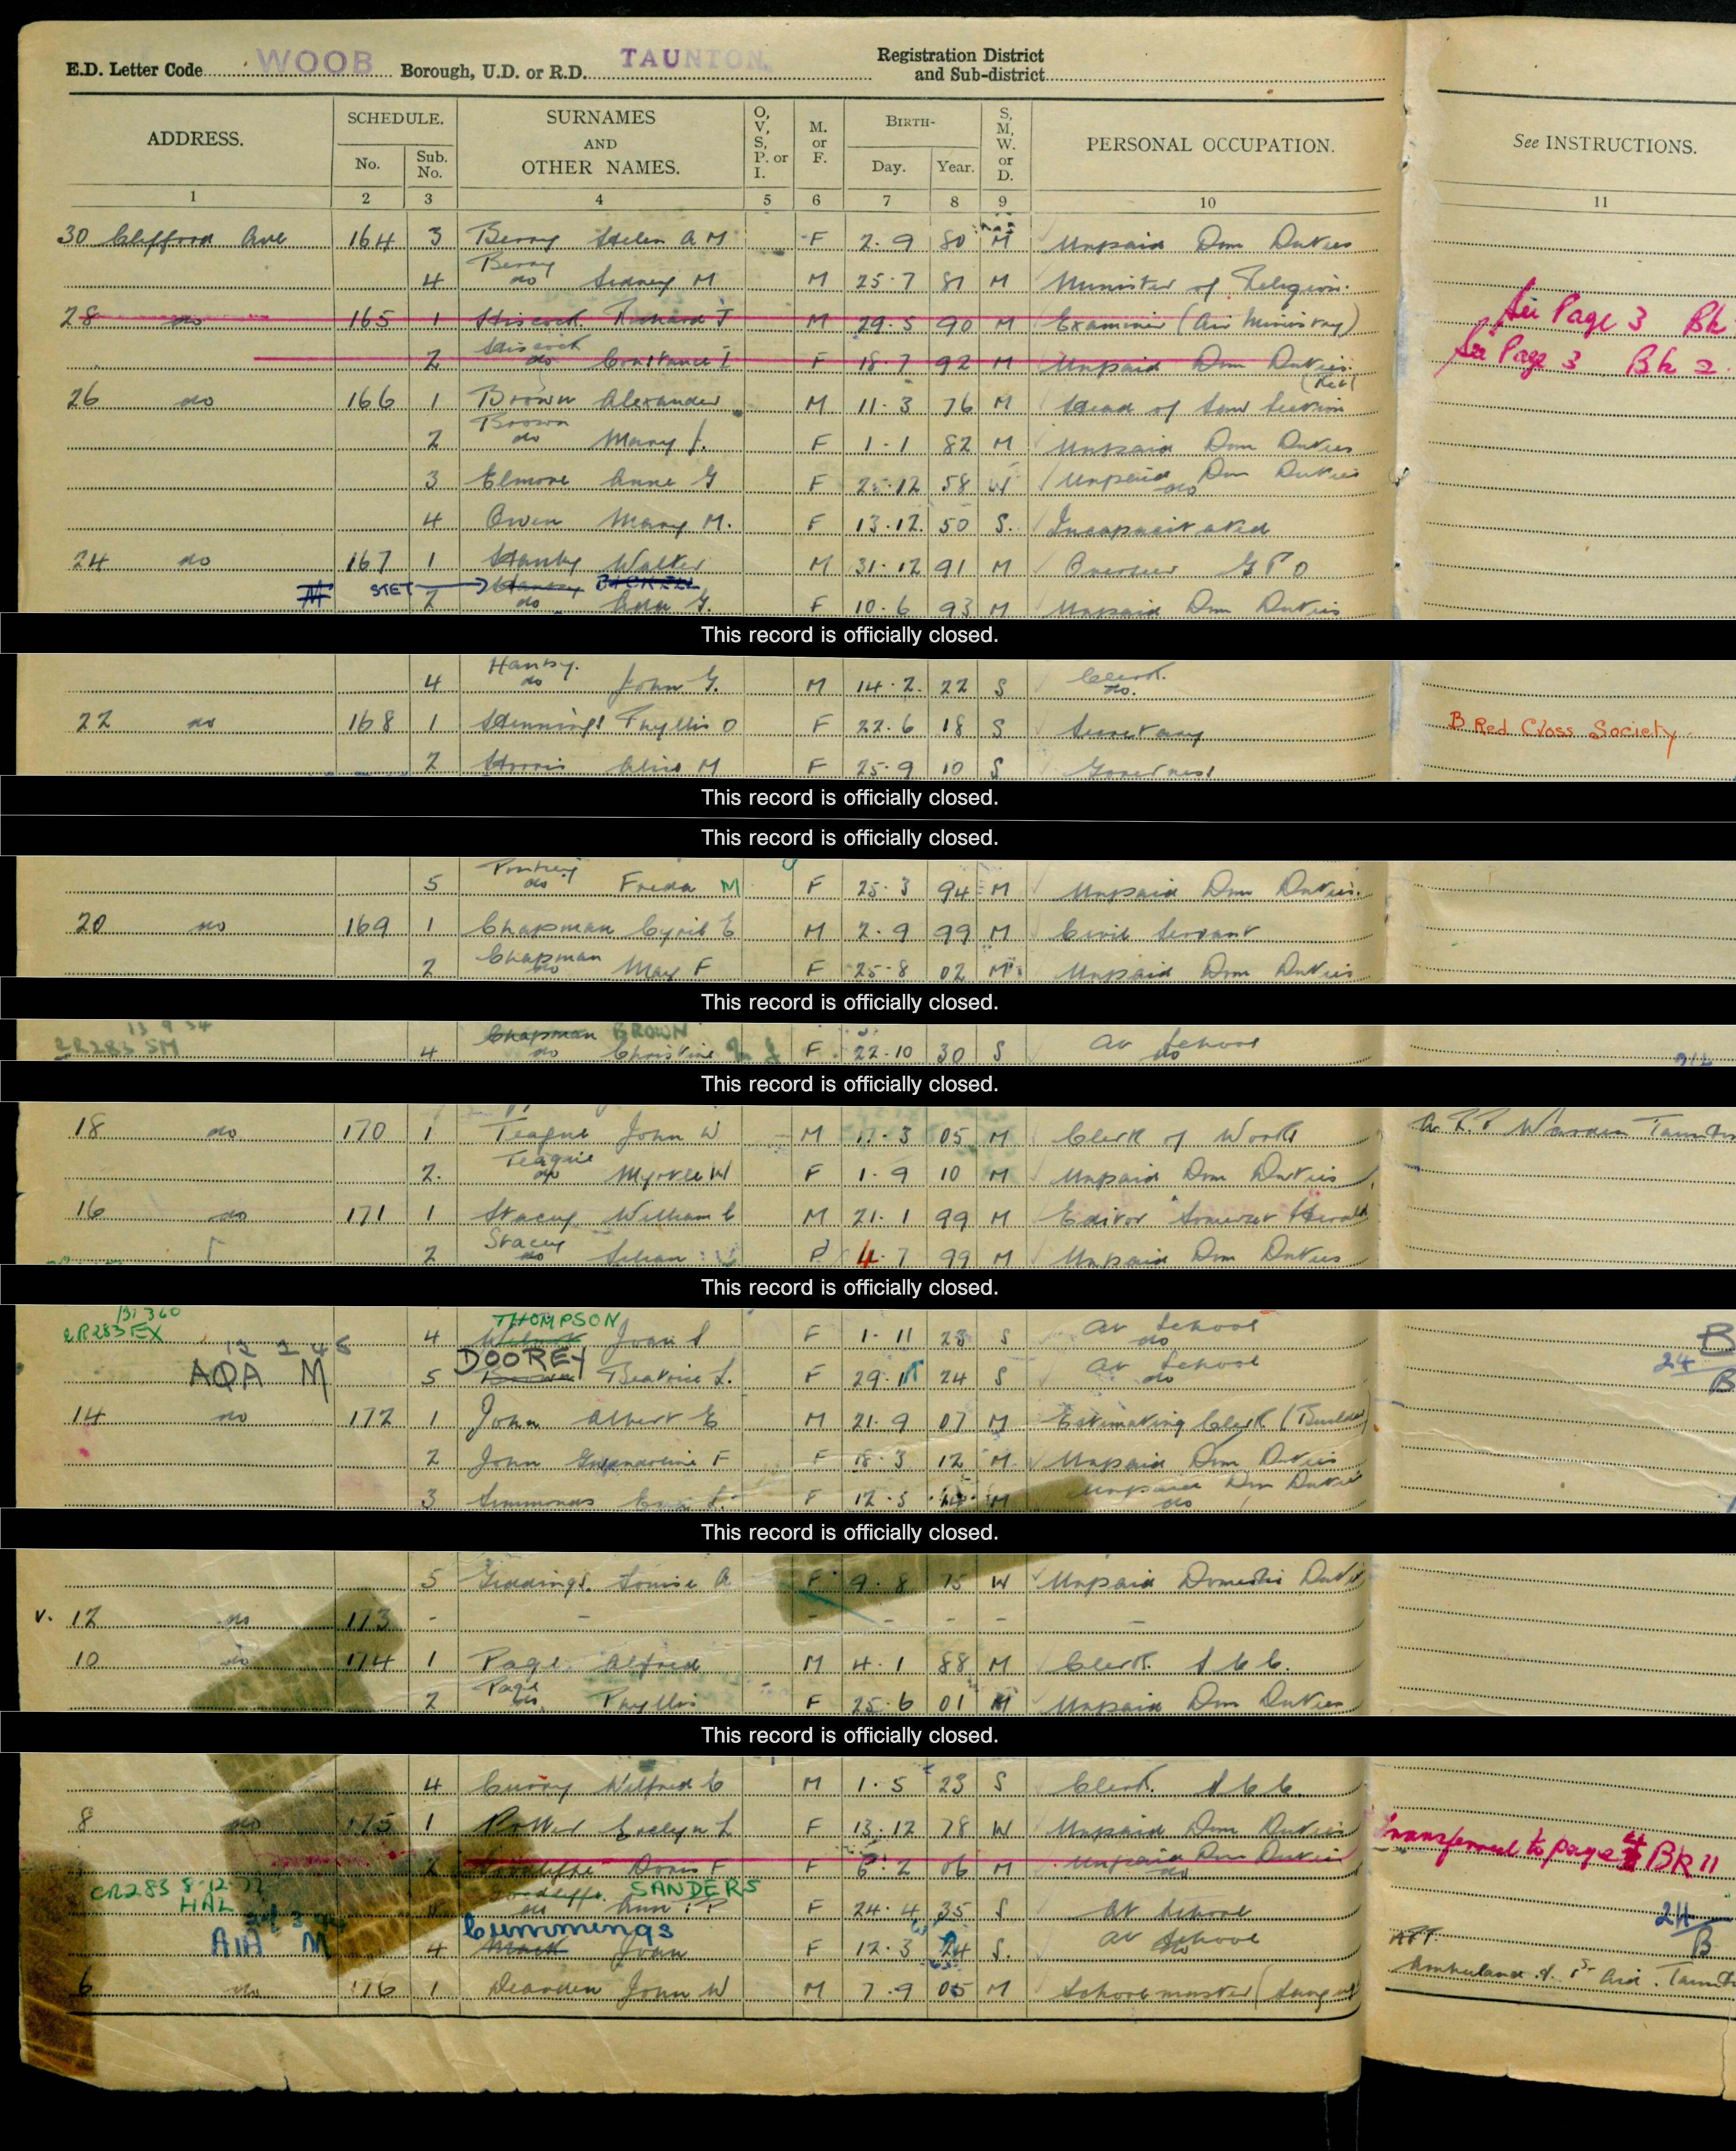 E.D. Letter Code WOOB Borough, U.D. or R.D. TAUNTON. Registration District and Sub-district
ADDRESS. SCHEDULE. No. Sub. No. SURNAMES AND OTHER NAMES. O, V, S, P. or I. M. or F. BIRTH- Day. Year. S, M, W. or D. PERSONAL OCCUPATION. See INSTRUCTIONS.
1 2 3 4 5 6 7 8 9 10 11
30 Clifford Ave 164 3 Berry Helen A M F 2.9 80 M Unpaid Dom Duties
4 Berry do Sidney M M 25.7 81 M Minister of Religion.
28 do 165 1 Hiscock Richard J M 29.5 90 M Examiner (Air Ministry) See Page 3 Bk
2 Hiscock do Constance I F 18.7 92 M Unpaid Dom Duties. See Page 3 Bk 2.
26 do 166 1 Brown Alexander M 11.3 76 M Head of Section (Ret)
2 Brown do Mary F 1.1 82 M Unpaid Dom Duties
3 Elmore Anne G F 25.12 58 W Unpaid Dom Duties do
4 Owen Mary M. F 13.12. 50 S. Incapacitated
24 do 167 1 Hanby Walter M 31.12 91 M Overseer G P O
STET 2 Hanby BICKELL do Ada G. F 10.6 93 M Unpaid Dom Duties
This record is officially closed.
4 Hanby. do John G. M 14.2. 22 S Clerk. do.
22 do 168 1 Hennings Phyllis O F 22.6 18 S Secretary B Red Cross Society
2 Harris M F 25.9 10 S Governess
This record is officially closed.
This record is officially closed.
5 do Freda M F 25.3 94 M Unpaid Dom Duties.
20 do 169 1 Chapman Cyril E M 2.9 99 M Civil Servant
2 Chapman do May F F 25.8 02 M Unpaid Dom Duties
This record is officially closed.
CR283 SM 4 Chapman BROWN do Christine F 22.10 30 S At School do
This record is officially closed.
18 do 170 1 Teague John W M 11.3 05 M Clerk of Works A.R.P Warden
2. Teague do Myrtle W F 1.9 10 M Unpaid Dom Duties
16 do 171 1 Stacey William C M 21.1 99 M Editor Somerset Herald
2 Stacey do Lilian F 4.7 99 M Unpaid Dom Duties
This record is officially closed.
CR283 EX 4 THOMPSON Joan F 1.11 S At School do
AOA M 5 DOOREY Beatrice L. F 29. 24 S At School do
14 do 172 1 John Albert E M 21.9 07 M Estimating Clerk (Builder)
2 John Gwendoline F F 18.3 12 M Unpaid Dom Duties
3 Simmonds F 12.5 M Unpaid Dom Duties do
This record is officially closed.
5 Giddings. Louise A F 9.8 75 W Unpaid Domestic Duties
v. 12 do 173 - - - - - - -
10 do 174 1 Page Alfred M 4.1 88 M Clerk. S C C.
2 Page do Phyllis F 25.6 01 M Unpaid Dom Duties
This record is officially closed.
4 Curry Wilfred C M 1.5 23 S Clerk. S C C.
8 do 175 1 Potter Evelyn L F 13.12 78 W Unpaid Dom Duties
2 Doris F F 6.2 06 M Unpaid Dom Duties do Transferred to page 4 BK 11
CR283 8.12. HAL SANDERS do Ann F 24.4 35 S At School
AIA M 4 Cummings Joan F 12.3 24 S. At School do
6 do 176 1 Dearden John W M 7.9 05 M Schoolmaster Ambulance & 1st Aid.